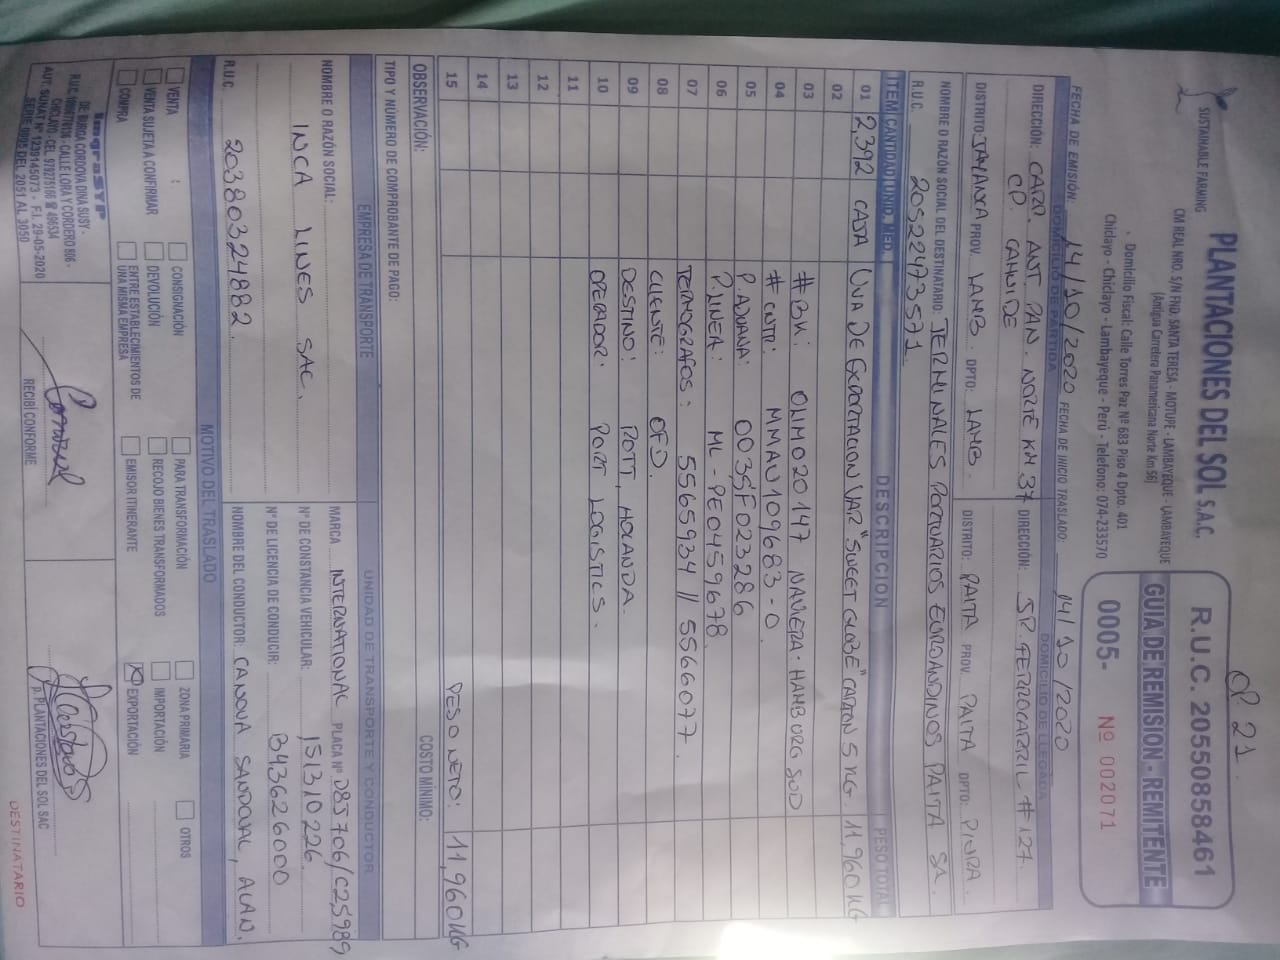 OP. 21.
SUSTAINABLE FARMING
PLANTACIONES DEL SOL S.A.C.
CM REAL NRO. S/N FND. SANTA TERESA - MOTUPE - LAMBAYEQUE - LAMBAYEQUE
(Antigua Carretera Panamericana Norte Km 56)
Domicilio Fiscal: Calle Torres Paz Nº 683 Piso 4 Dpto. 401
Chiclayo - Chiclayo - Lambayeque - Perú - Telefono: 074-233570
R.U.C. 20550858461
GUIA DE REMISION - REMITENTE
0005- Nº 002071
FECHA DE EMISIÓN: 14/10/2020 FECHA DE INICIO TRASLADO: 14/10/2020
DOMICILIO DE PARTIDA DOMICILIO DE LLEGADA
DIRECCIÓN: CARR. ANT. PAN. NORTE KM 37 DIRECCIÓN: JR. FERROCARRIL #127.
CP. CAHUIDE
DISTRITO JAYANCA PROV. LAMB. DPTO: LAMB. DISTRITO: PAITA PROV. PAITA DPTO: PIURA.
NOMBRE O RAZÓN SOCIAL DEL DESTINATARIO: TERMINALES PORTUARIOS EUROANDINOS PAITA SA.
R.U.C. 20522473571
ITEM CANTIDAD UNID. MED. DESCRIPCION PESO TOTAL
01 2,392 CAJA UVA DE EXPORTACION VAR "SWEET GLOBE" CARTON 5 KG. 11,960 KG
02 # BK: OLIM020147 NAVIERA: HAMBURG SUD
03 # CNTR: MMAU109683-0
04 P. ADUANA: 0035F023286
05 P. LINEA: ML-PE0459678
06 TERMOGRAFOS: 5565934 // 5566077.
07 CLIENTE: OFD.
08 DESTINO: ROTT, HOLANDA.
09 OPERADOR: PORT LOGISTICS.
10
11
12
13
14
15 PESO NETO: 11,960 KG
OBSERVACIÓN:
COSTO MÍNIMO:
TIPO Y NÚMERO DE COMPROBANTE DE PAGO:
EMPRESA DE TRANSPORTE UNIDAD DE TRANSPORTE Y CONDUCTOR
NOMBRE O RAZÓN SOCIAL: MARCA INTERNATIONAL PLACA Nº D8S706/C2S989
INCA LINES SAC. Nº DE CONSTANCIA VEHICULAR: 151310226.
Nº DE LICENCIA DE CONDUCIR: B43626000
R.U.C. 20380324882. NOMBRE DEL CONDUCTOR: CANOVA SANDOVAL, ALAN.
MOTIVO DEL TRASLADO
VENTA CONSIGNACIÓN PARA TRANSFORMACIÓN ZONA PRIMARIA OTROS
VENTA SUJETA A CONFIRMAR DEVOLUCIÓN RECOJO BIENES TRANSFORMADOS IMPORTACIÓN
COMPRA ENTRE ESTABLECIMIENTOS DE UNA MISMA EMPRESA EMISOR ITINERANTE X EXPORTACIÓN
ImgraSYP
DE BURGA CORDOVA DINA SUSY -
CALLE LORA Y CORDERO 806 -
CHICLAYO - CEL. 978275166 ☎ 496534
AUT. SUNAT Nº 1239145073 - F.I. 29-05-2020
SERIE 0005 DEL 2051 AL 3050
RECIBÍ CONFORME
p. PLANTACIONES DEL SOL SAC
DESTINATARIO